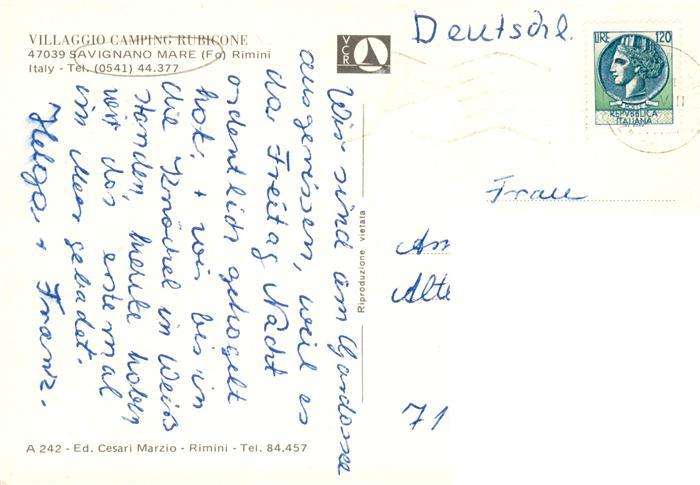 VILLAGGIO CAMPING RUBICONE
47039 SAVIGNANO MARE (Fo) Rimini
Italy - Tel. (0541) 44.377
VCR
Deutschl.
LIRE 120
REPVBBLICA
ITALIANA
Wir sind am Gardasee
ausgerissen, weil es
da Freitag Nacht
ordentlich gehagelt
hat, + wir bis in
die Knöchel in Weiß
standen, heute haben
wir das erstemal
im Meer gebadet.
Helga + Franz.
Riproduzione vietata
Frau
Am
Alte
71
A 242 - Ed. Cesari Marzio - Rimini - Tel. 84.457